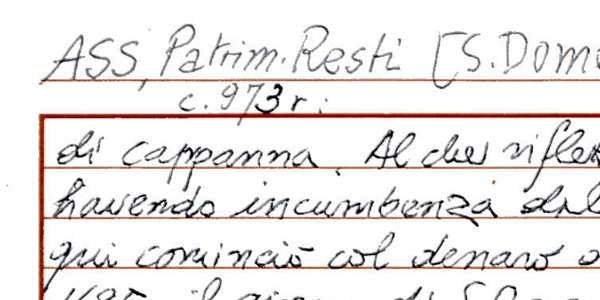 ASS, Patrim. Resti [S. Dom
c. 973 r:
di cappanna. Al che rifle
havendo incumbenza dal
qui cominciò col denaro
il di